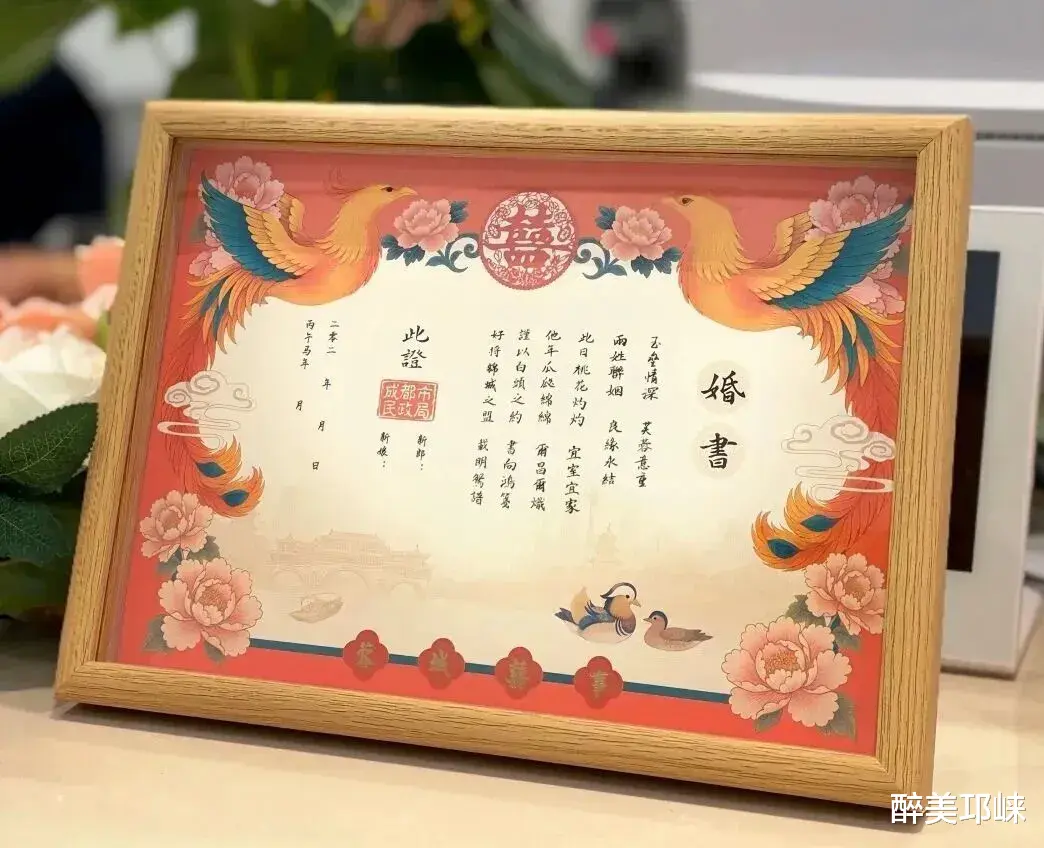 囍
婚書
玉壘情深 芙蓉意重
兩姓聯姻 良緣永結
此日桃花灼灼 宜室宜家
他年瓜瓞綿綿 爾昌爾熾
謹以白頭之約 書向鴻箋
好将錦城之盟 載明鴛譜
此證
成都市民政局
新郎:
新娘:
二零二 年 月 日
丙午马年 月
蓉城囍事
醉美邛崃